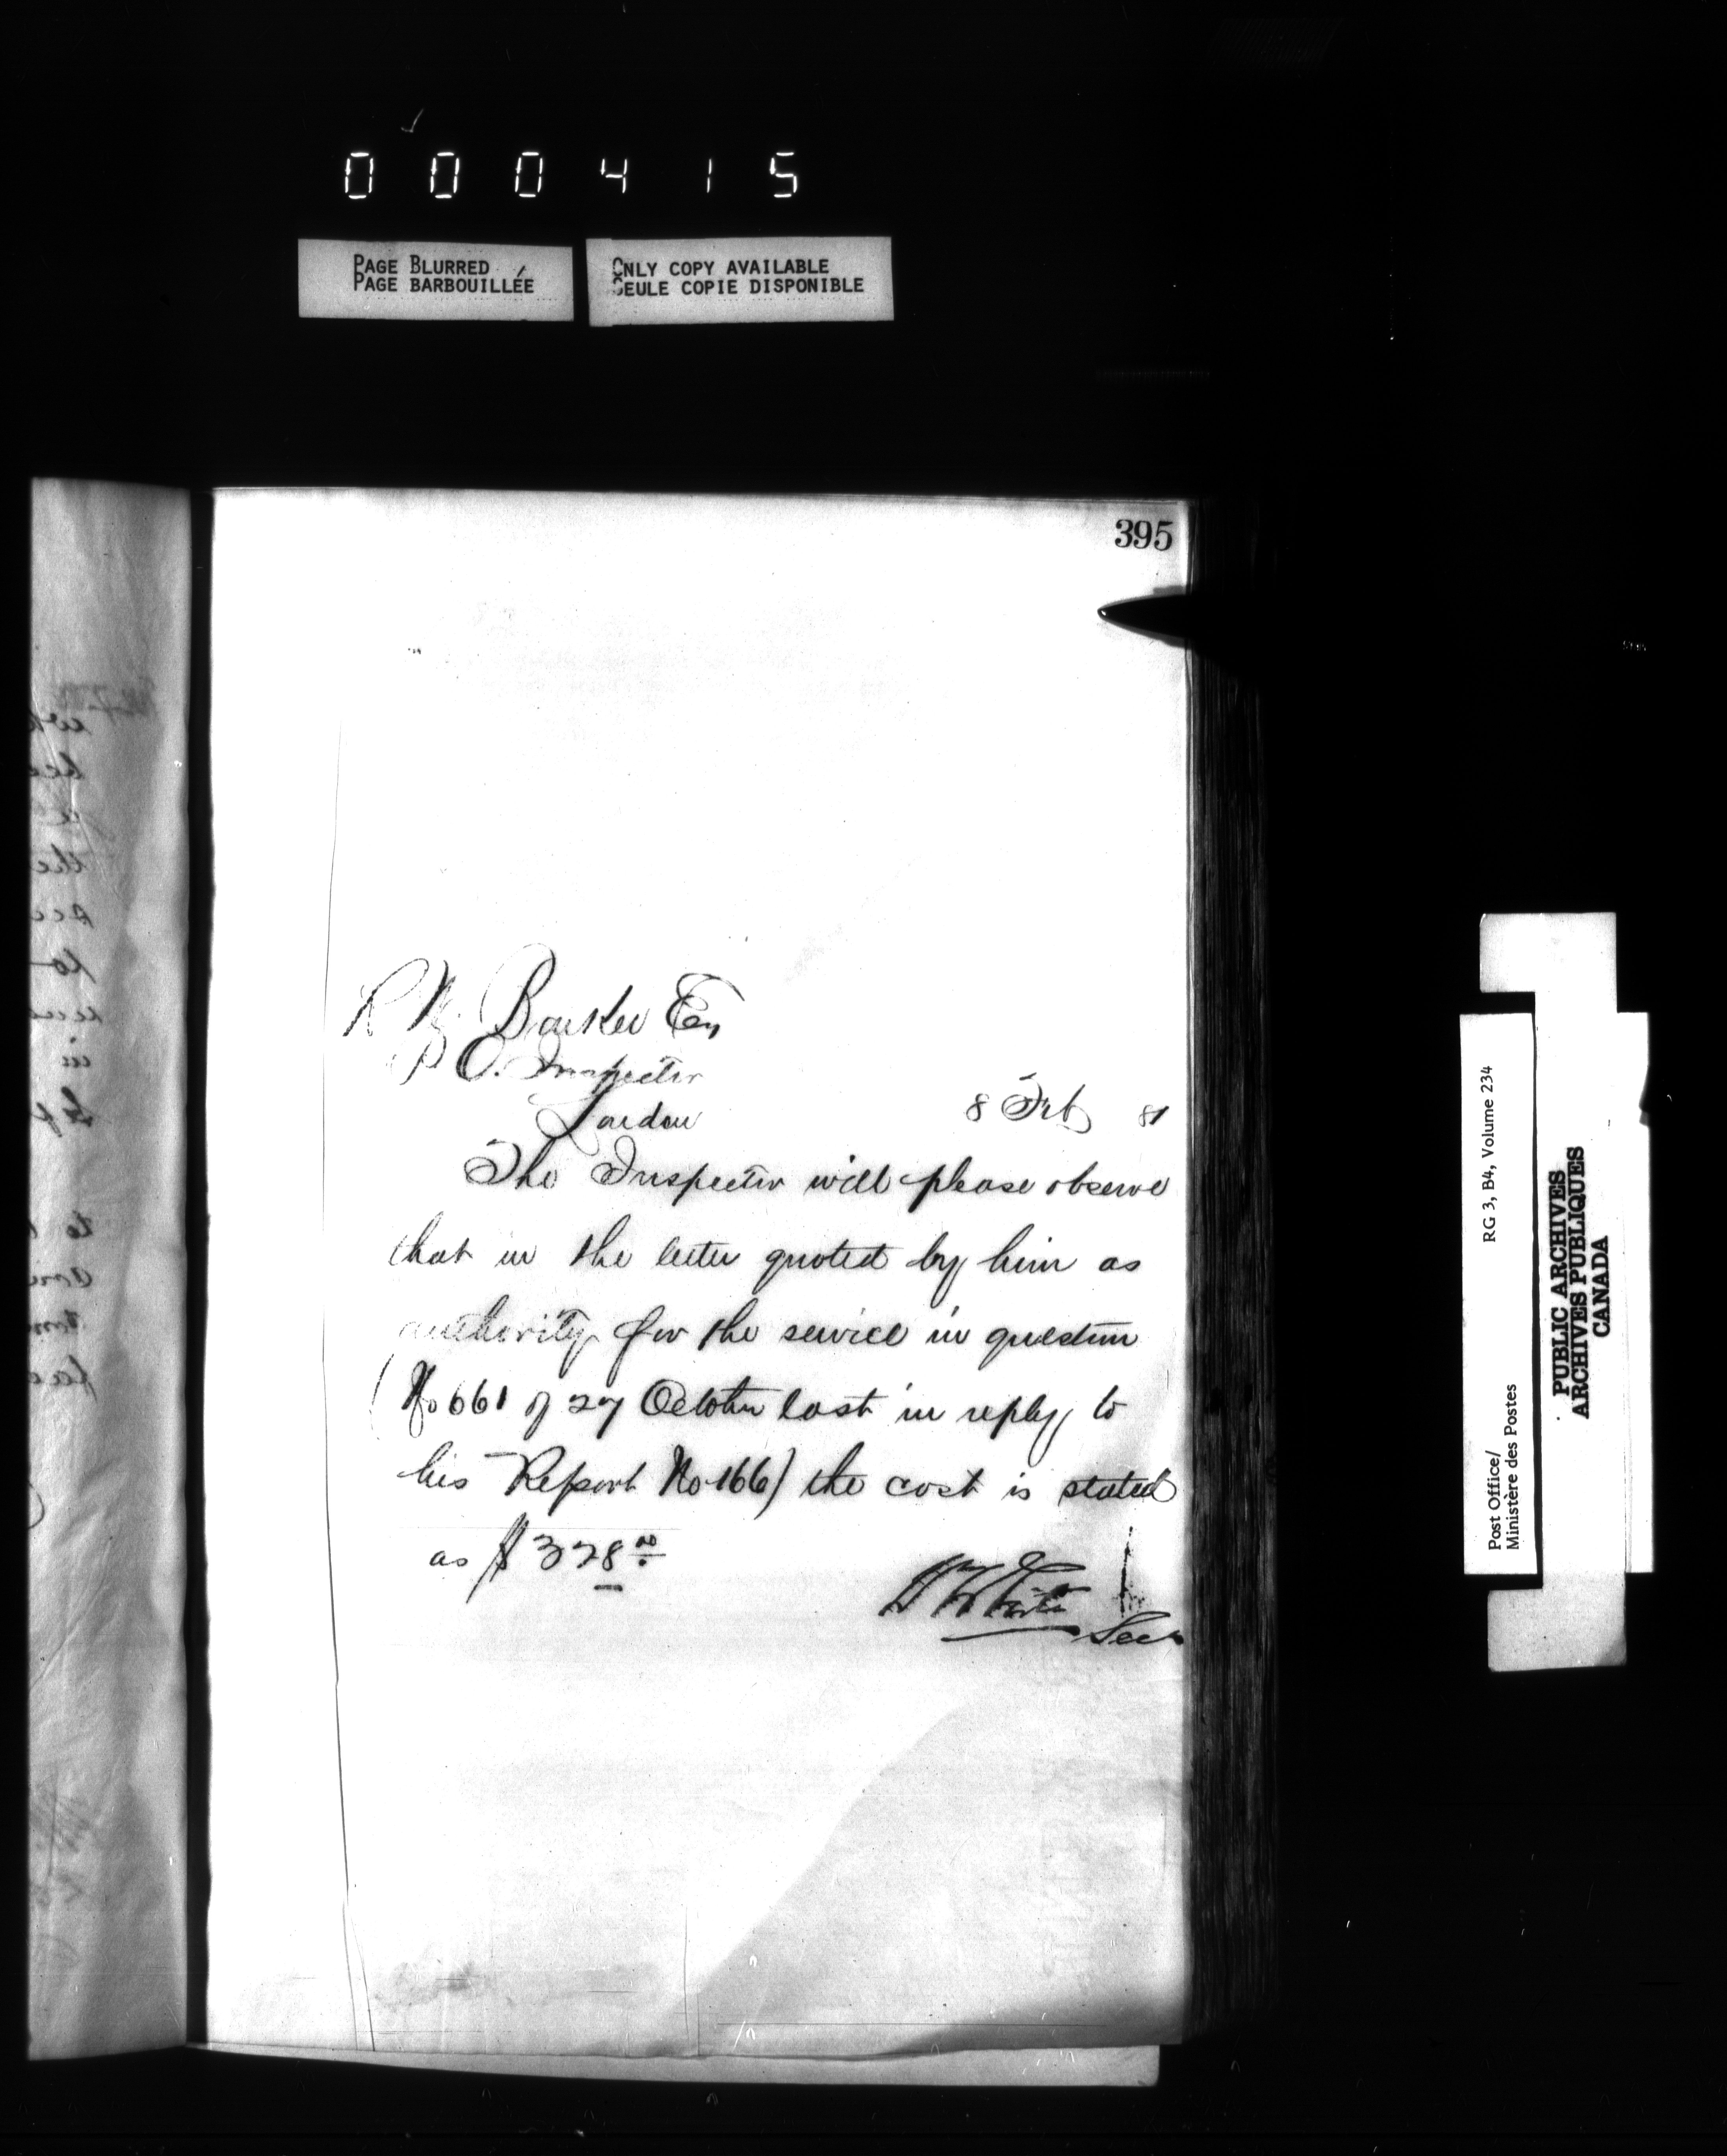 000415
PAGE BLURRED
PAGE BARBOUILLÉE
ONLY COPY AVAILABLE
SEULE COPIE DISPONIBLE
395
R W. Barker Esq
P O. Inspector
London
8 Feb 81
The Inspector will please observe
that in the letter quoted by him as
authority for the service in question
(No 661 of 27 October last in reply to
his Report No 166) the cost is stated
as $ 328 00
Wm White
Secy
RG 3, B4, Volume 234
Post Office/
Ministère des Postes
PUBLIC ARCHIVES
ARCHIVES PUBLIQUES
CANADA